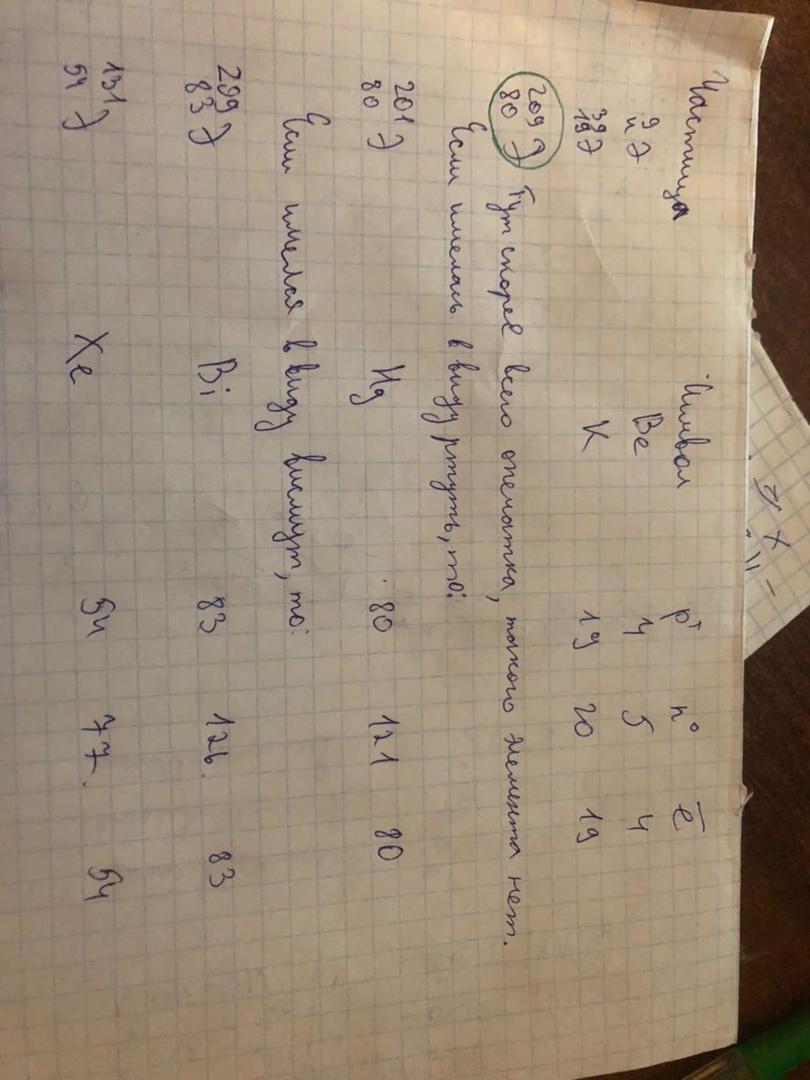 Частица Символ p⁺ n⁰ ē
⁹₄Э Be 4 5 4
³⁹₁₉Э K 19 20 19
²⁰⁹₈₀Э Тут скорее всего опечатка, такого элемента нет.
Если имелась в виду ртуть, то:
²⁰¹₈₀Э Hg 80 121 80
Если имелся в виду висмут, то:
²⁰⁹₈₃Э Bi 83 126. 83
¹³¹₅₄Э Xe 54 77. 54